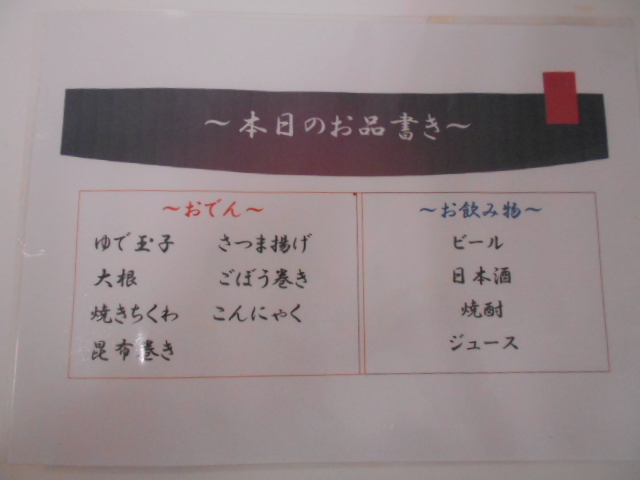 ～本日のお品書き～
～おでん～
ゆで玉子 さつま揚げ
大根 ごぼう巻き
焼きちくわ こんにゃく
昆布巻き
～お飲み物～
ビール
日本酒
焼酎
ジュース